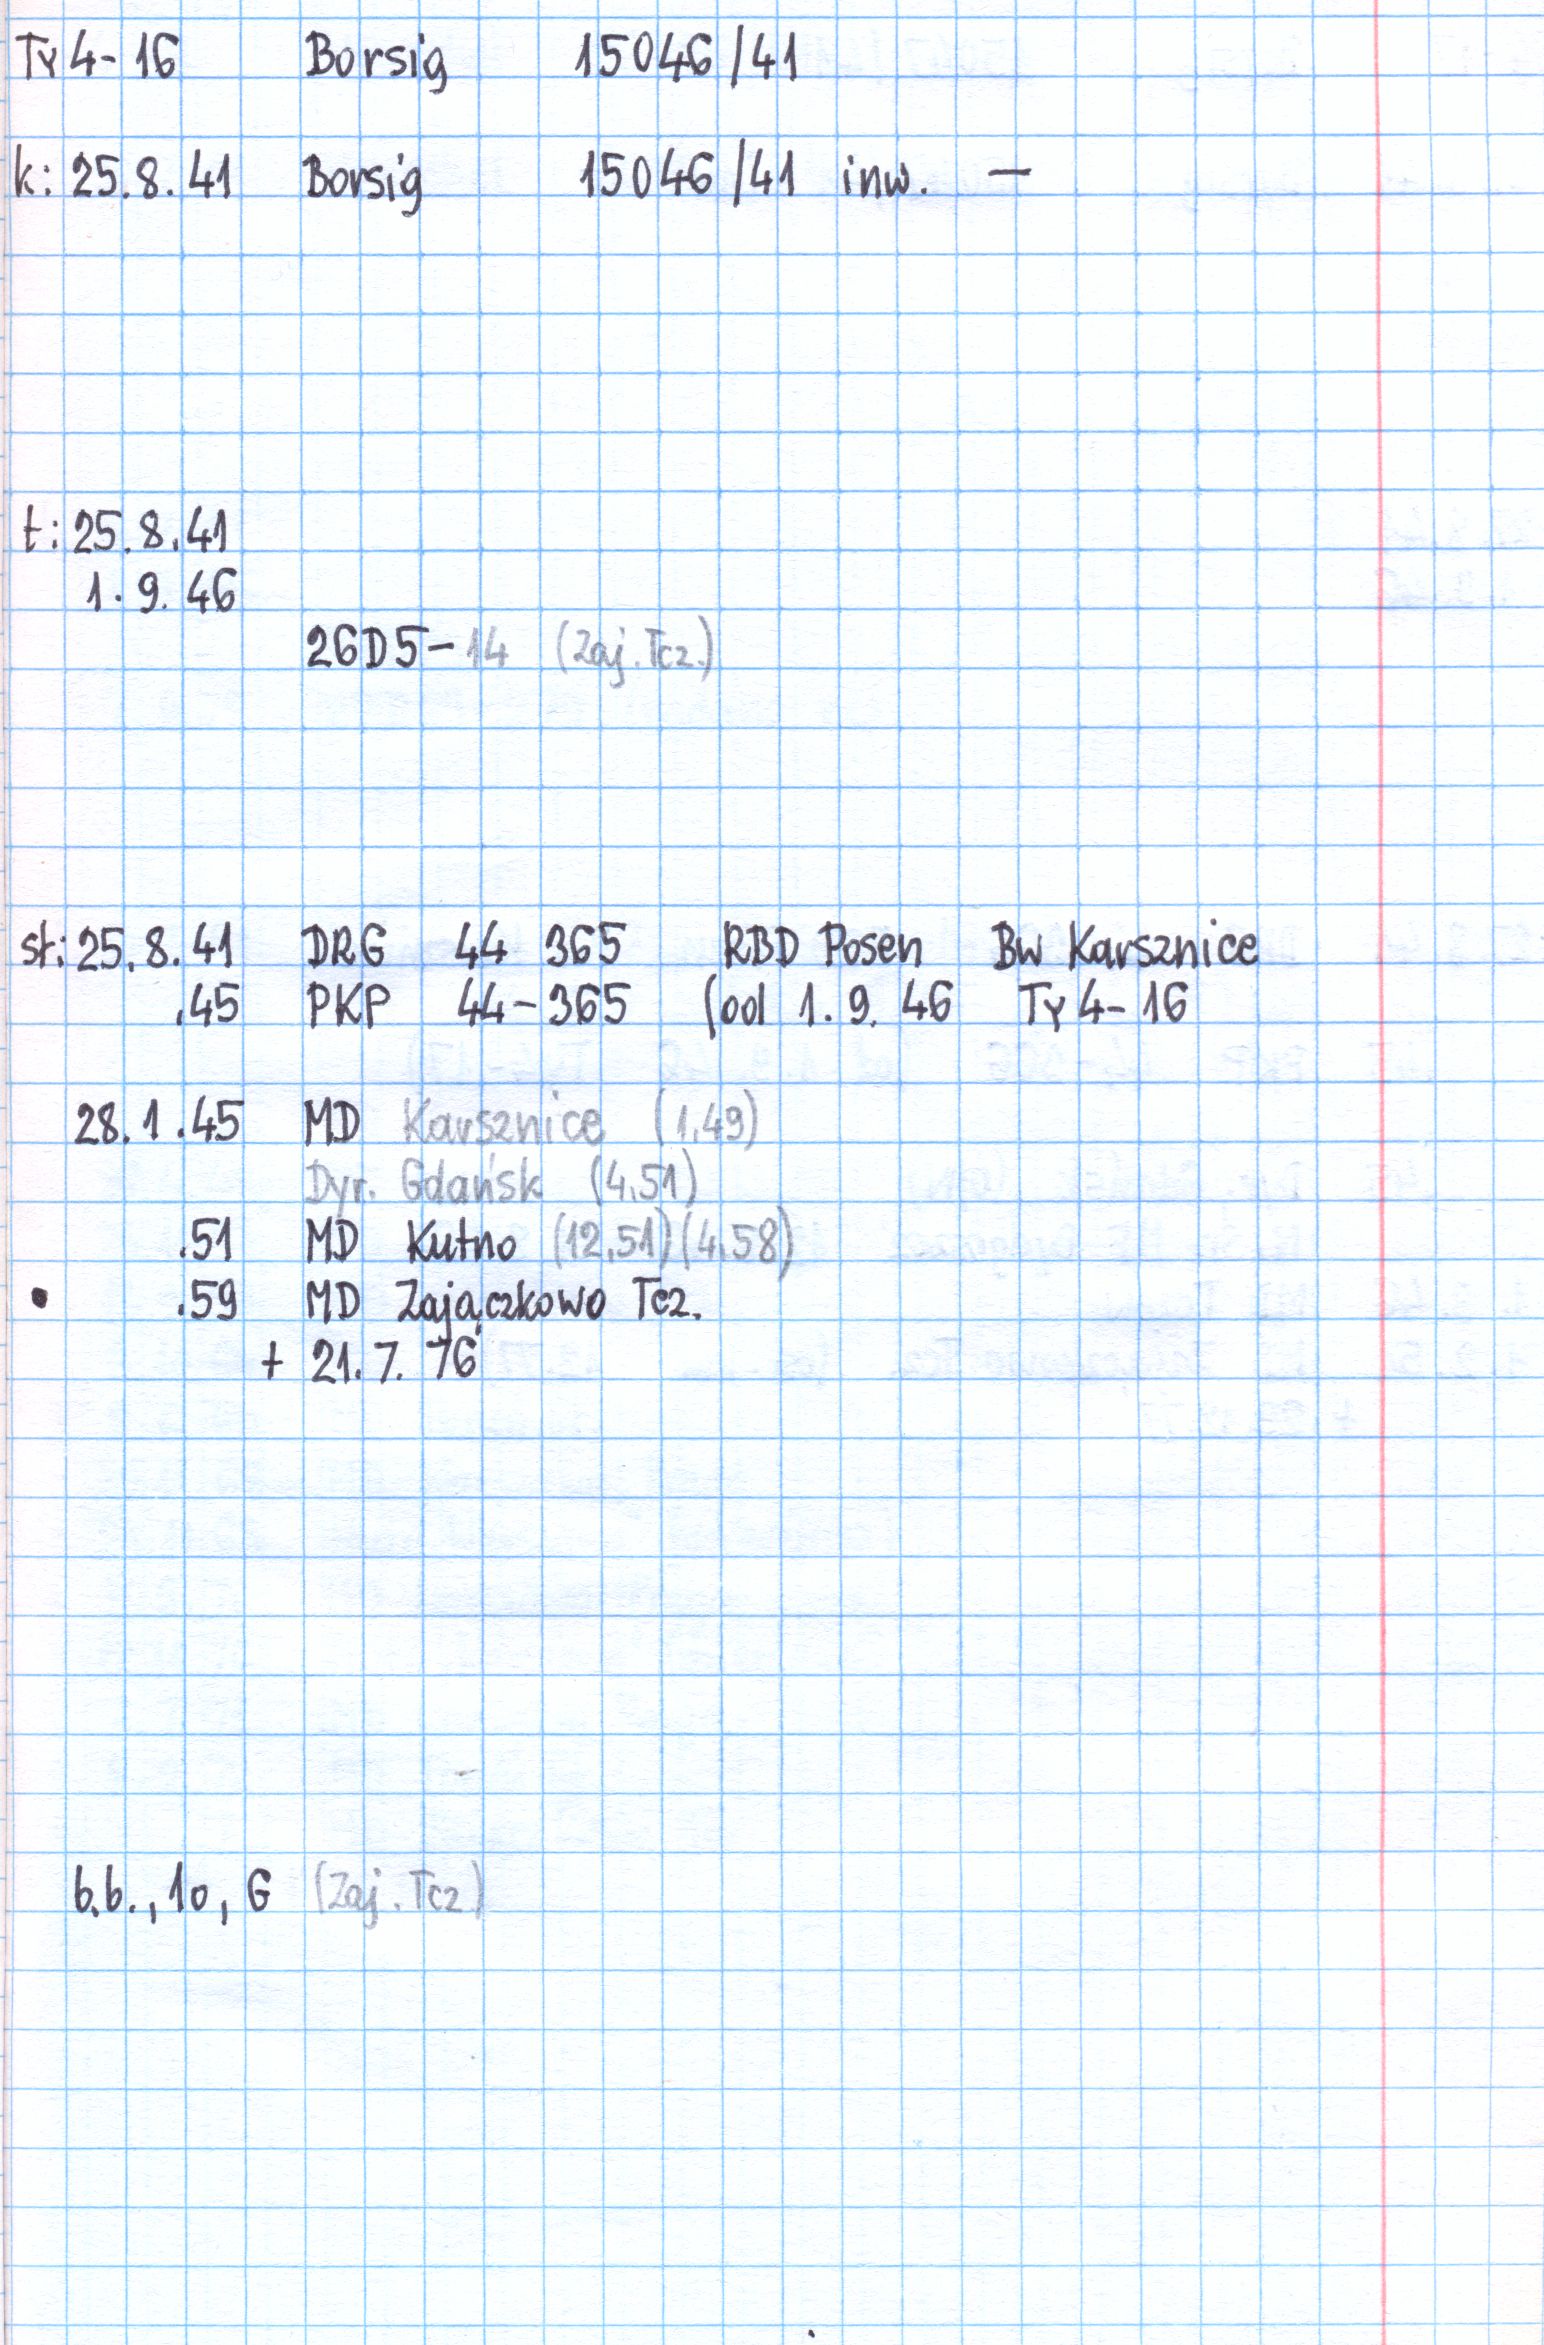 Ty4-16 Borsig 15046/41
k: 25.8.41 Borsig 15046/41 inw. —
t: 25.8.41
1.9.46
26D5-14 (Zaj. Tcz.)
st: 25.8.41 DRG 44 365 RBD Posen Bw Karsznice
.45 PKP 44-365 (od 1.9.46 Ty4-16
28.1.45 MD Karsznice (1.49)
Dyr. Gdańsk (4.51)
.51 MD Kutno (12.51) (4.58)
• .59 MD Zajączkowo Tcz.
+ 21.7.76
b.b., 1o, G (Zaj. Tcz.)